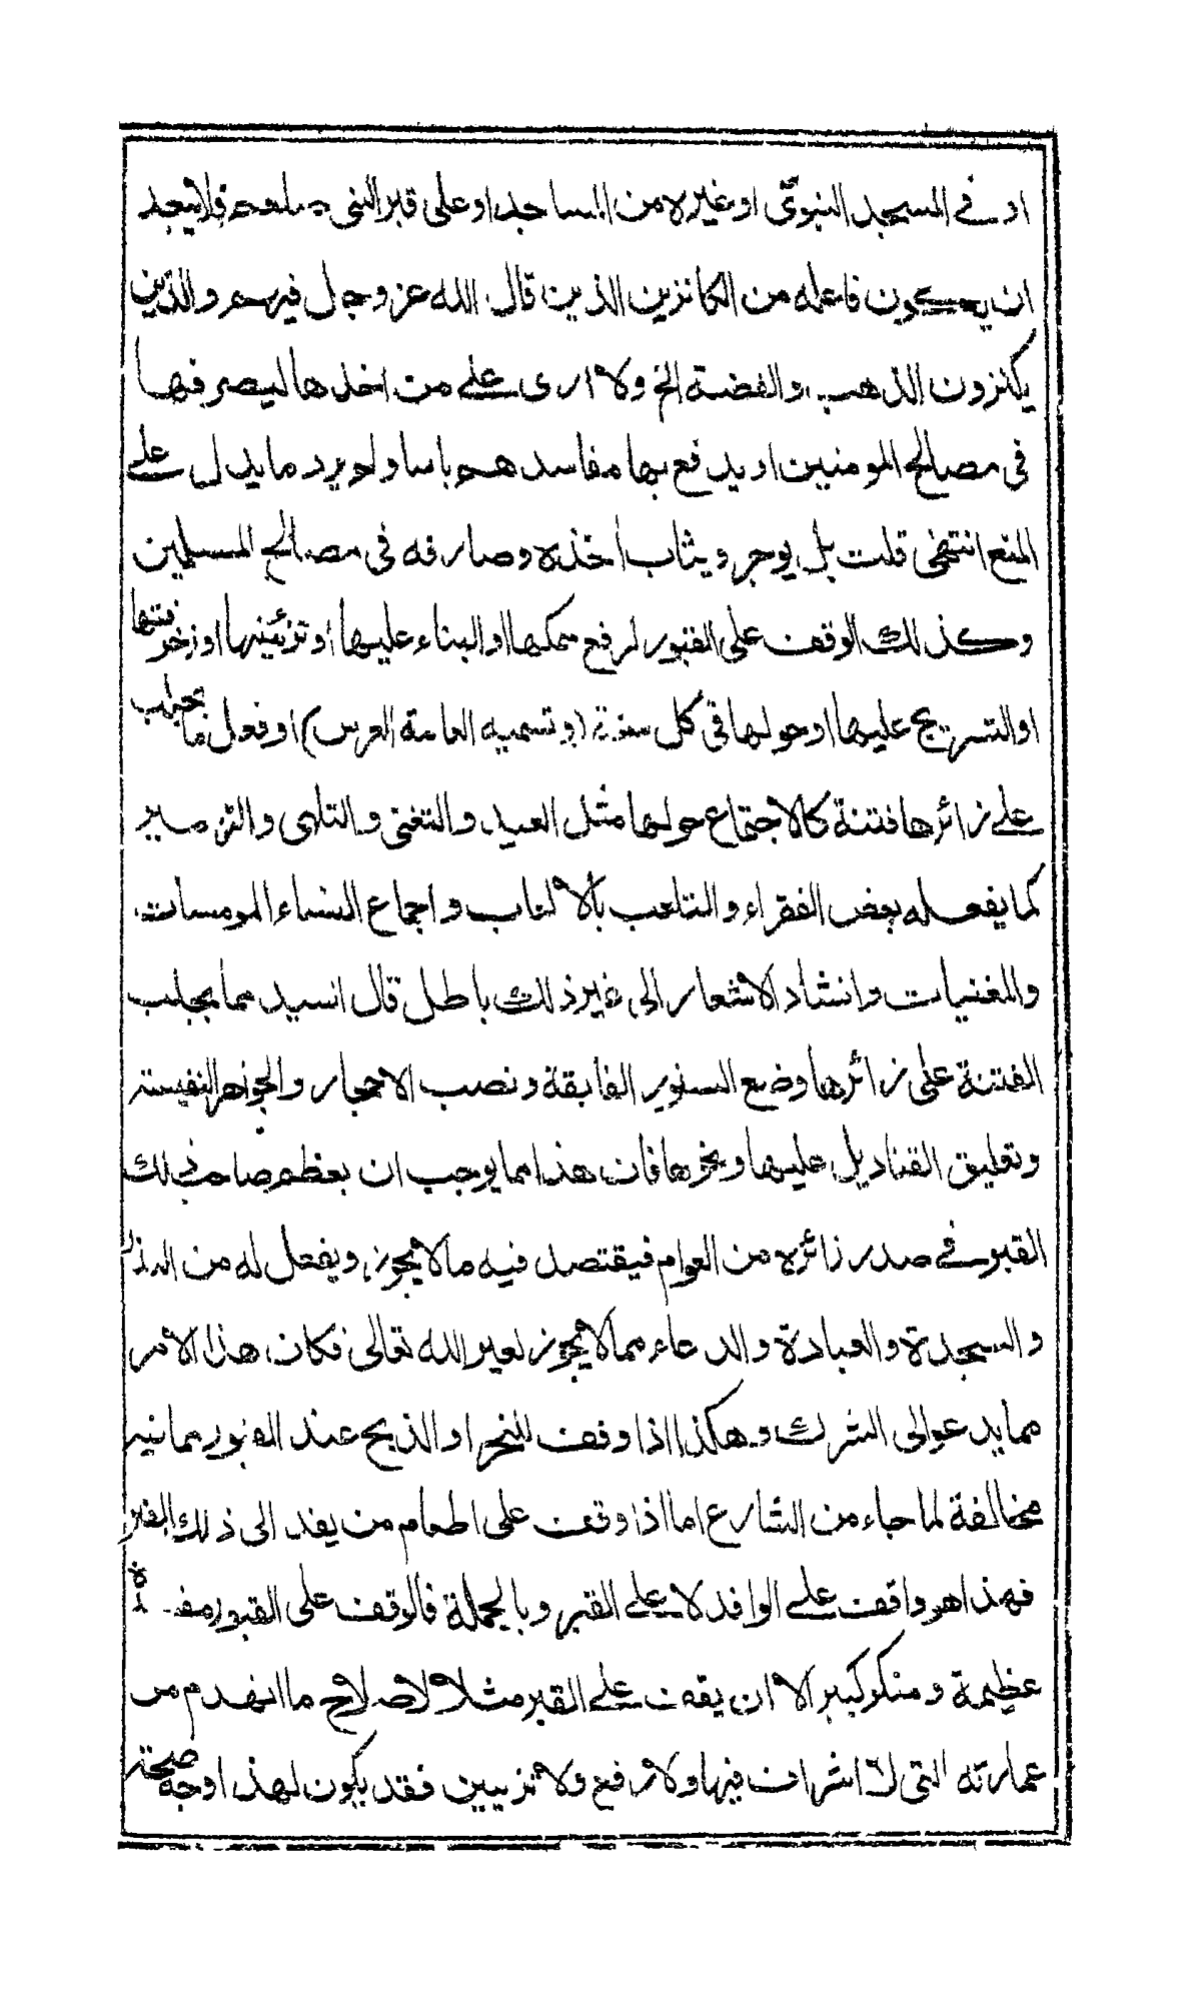 او في المسجد النبويّ او غيره من المساجد او على قبر النبي صلعم فلا يبعد
ان يكون فاعله من الكانزين الذين قال الله عز وجل فيهم والذين
يكنزون الذهب والفضة الخ ولا ارى على من اخذها ليصرفها
في مصالح المومنين او يدفع بها مفاسدهم باسا ولم يرد ما يدل على
المنع انتهى قلت بل يوجر ويثاب أخذه وصارفه في مصالح المسلمين
وكذلك الوقف على القبور لرفع سمكها او البناء عليها او تزئينها او زخرفتها
او التسريج عليها او حولها في كل سنة (وتسميه العامة العرس) او فعل ما يجلب
على زائرها فتنة كالاجتماع حولها مثل العيد والتغنى والتلهى والتزمير
كما يفعله بعض الفقراء والتلعب بالالعاب واجماع النساء المومسات
والمغنيات وانشاد الاشعار الى غير ذلك باطل قال السيد مما يجلب
الفتنة على زائرها وضع الستور الفايقة ونصب الاحجار والجواهر النفيسة
وتعليق القناديل عليها ونحوها فان هذا مما يوجب ان يعظم صاحب ذلك
القبر في صدر زائره من العوام فيقتصد فيه ما لا يجوز ويفعل له من النذر
والسجدة والعبادة والدعاء مما لا يجوز لغير الله تعالى فكان هذا الامر
مما يدعو الى الشرك وهكذا اذا وقف للنحر او الذبح عند القبور مما فيه
مخالفة لما جاء من الشارع اما اذا وقف على اطعام من يفد الى ذلك القبر
فهذا هو واقف على الوافد لا على القبر وبالجملة فالوقف على القبور مفسدة
عظيمة ومنكر كبير الا ان يقف على القبر مثلا لاصلاح ما انهدم من
عمارته التي لا اشراف فيها ولا رفع ولا تزيين فقد يكون لهذا وجه صحة